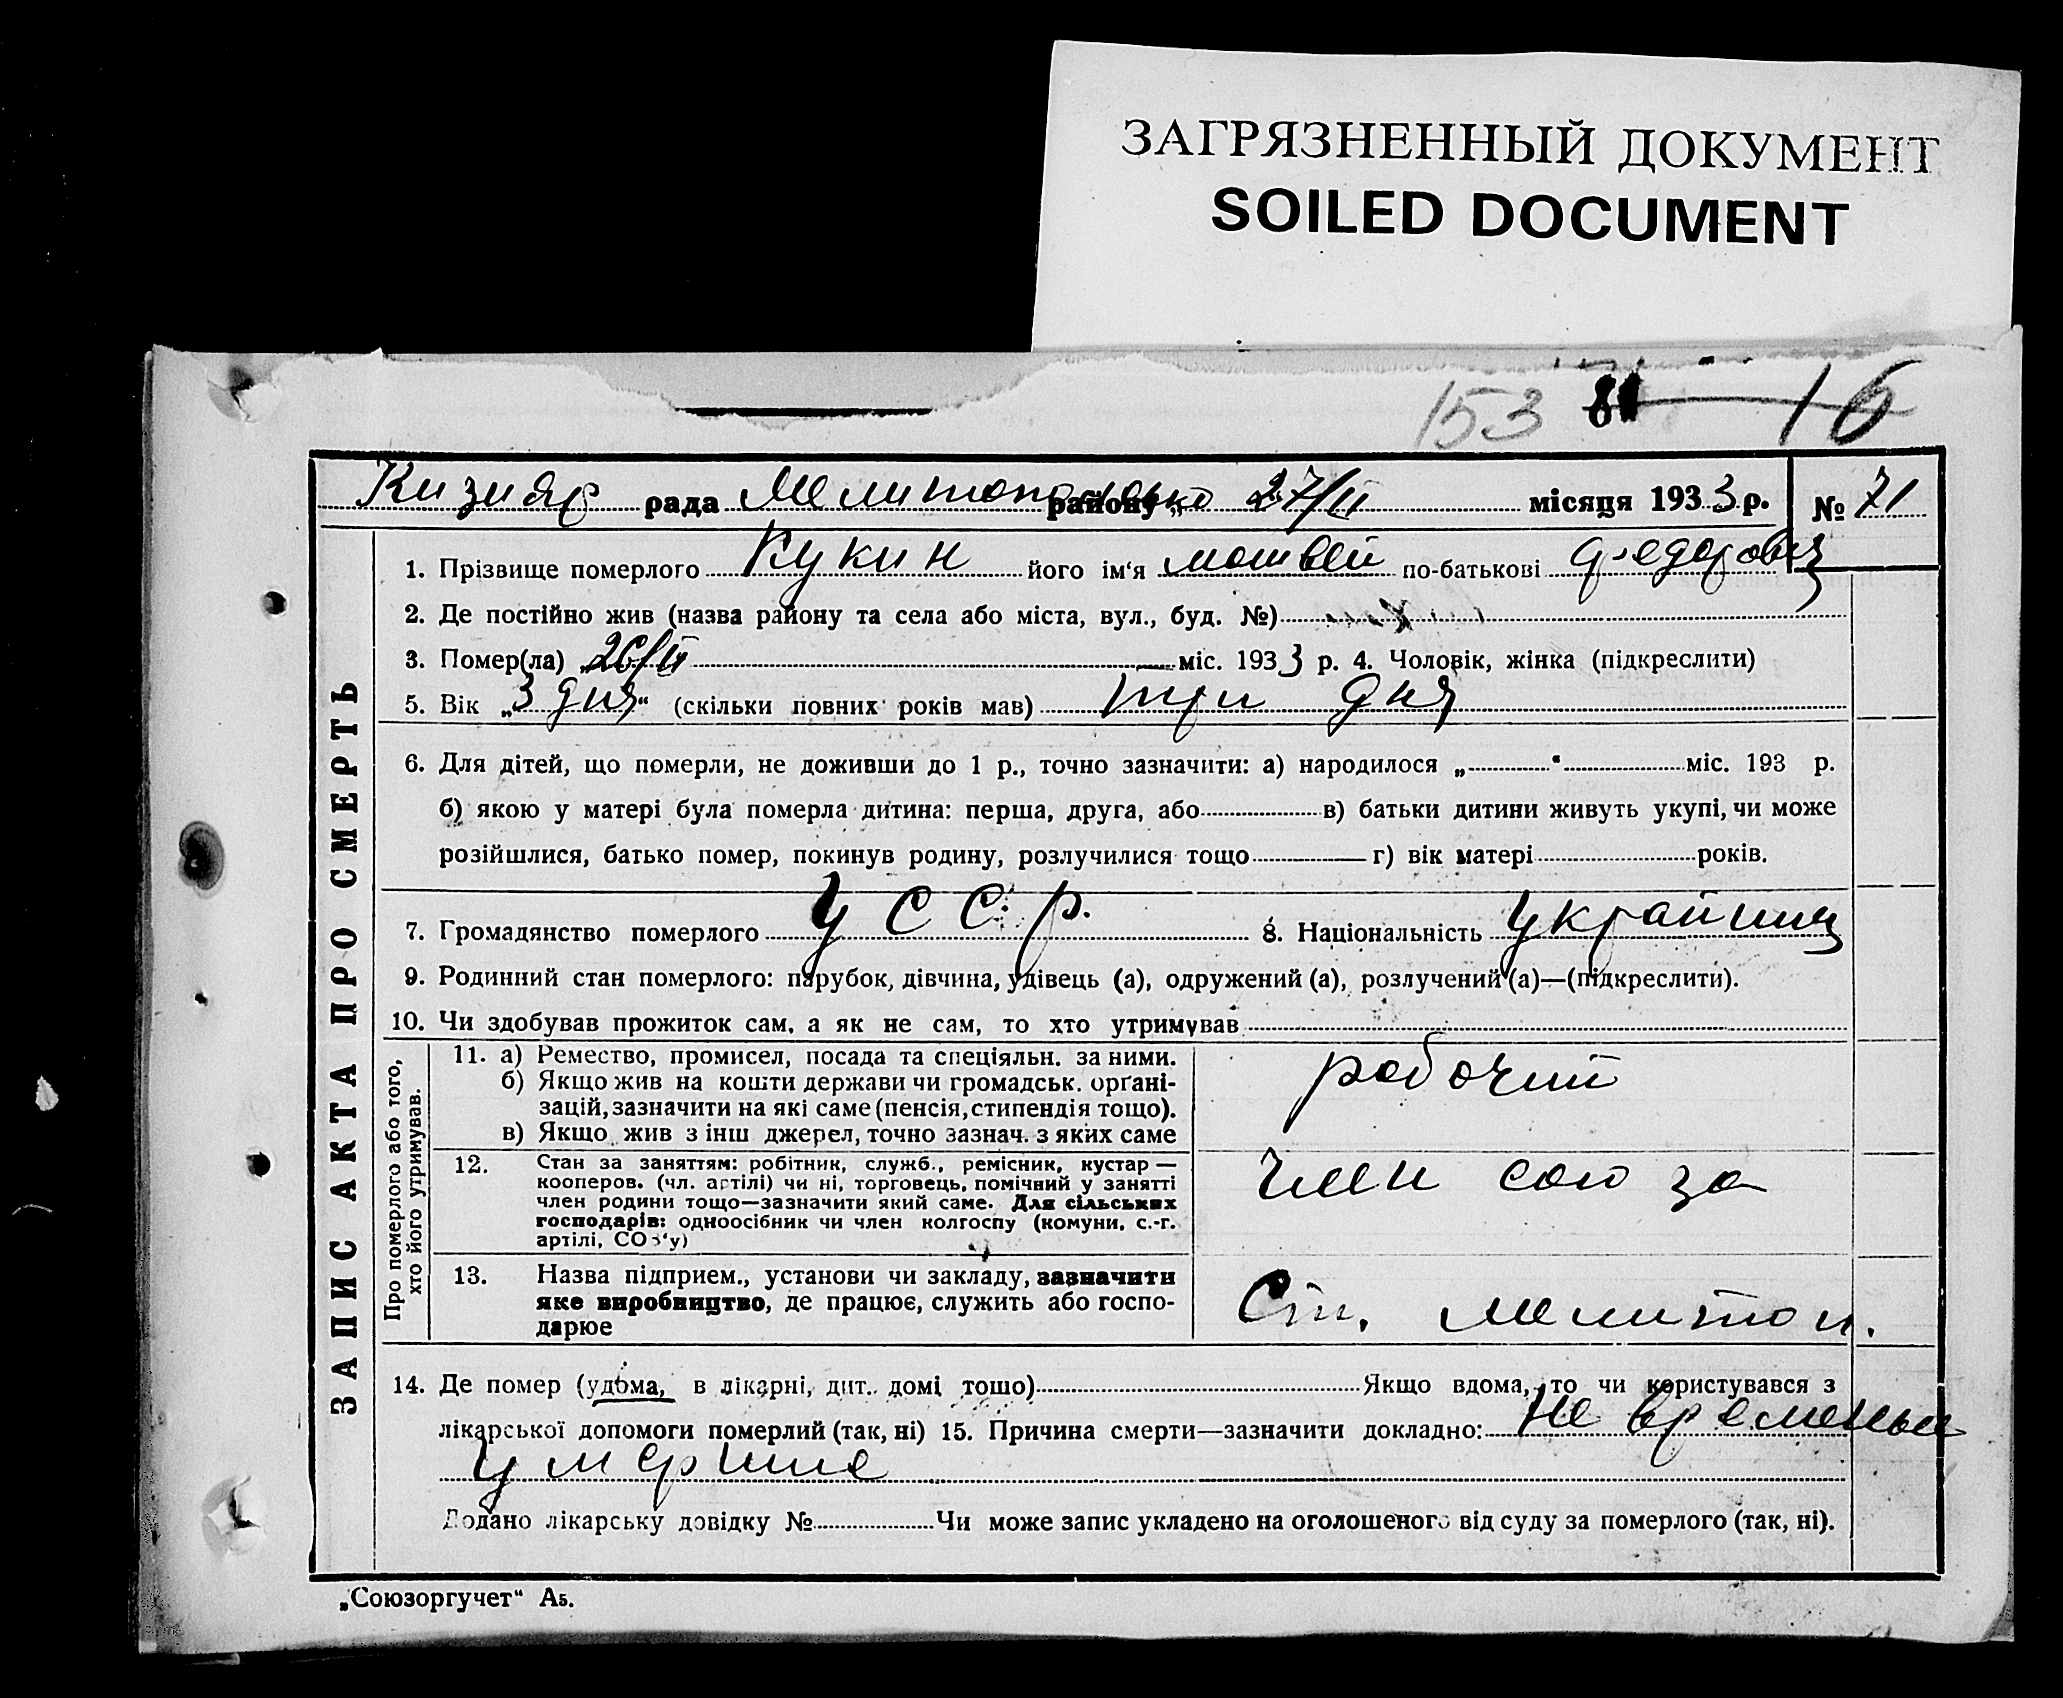 ЗАГРЯЗНЕННЫЙ ДОКУМЕНТ
SOILED DOCUMENT
153 16
Кизияр рада Мелитопольско району „ 27/II місяця 1933 р. № 71
1. Прізвище померлого Кукин його ім'я Матвей по-батькові Федорович
2. Де постійно жив (назва району та села або міста, вул., буд. №)
3. Помер(ла) „26/II міс. 1933 р. 4. Чоловік, жінка (підкреслити)
5. Вік „3 дня“ (скільки повних років мав) три дня
6. Для дітей, що померли, не доживши до 1 р., точно зазначити: а) народилося „ “ міс. 193 р.
б) якою у матері була померла дитина: перша, друга, або в) батьки дитини живуть укупі, чи може
розійшлися, батько помер, покинув родину, розлучилися тощо г) вік матері років.
7. Громадянство померлого УССР. 8. Національність
9. Родинний стан померлого: парубок, дівчина, удівець (а), одружений (а), розлучений (а)—(підкреслити).
10. Чи здобував прожиток сам, а як не сам, то хто утримував
ЗАПИС АКТА ПРО СМЕРТЬ
Про померлого або того, хто його утримував.
11. а) Ремество, промисел, посада та спеціяльн. за ними.
б) Якщо жив на кошти держави чи громадськ. орґані-
зацій, зазначити на які саме (пенсія, стипендія тощо).
в) Якщо жив з інш джерел, точно зазнач. з яких саме
рабочий
12. Стан за заняттям: робітник, служб., ремісник, кустар —
кооперов. (чл. артілі) чи ні, торговець, помічний у занятті
член родини тощо—зазначити який саме. Для сільських
господарів: одноосібник чи член колгоспу (комуни, с.-г.
артілі, СОЗ'у)
член союза
13. Назва підприєм., установи чи закладу, зазначити
яке виробництво, де працює, служить або госпо-
дарює
Ст. Мелитоп.
14. Де помер (удома, в лікарні, дит. домі тощо) Якщо вдома, то чи користувався з
лікарської допомоги померлий (так, ні) 15. Причина смерти—зазначити докладно: Не временый
умерший
Додано лікарську довідку № Чи може запис укладено на оголошеного від суду за померлого (так, ні).
„Союзоргучет“ А5.